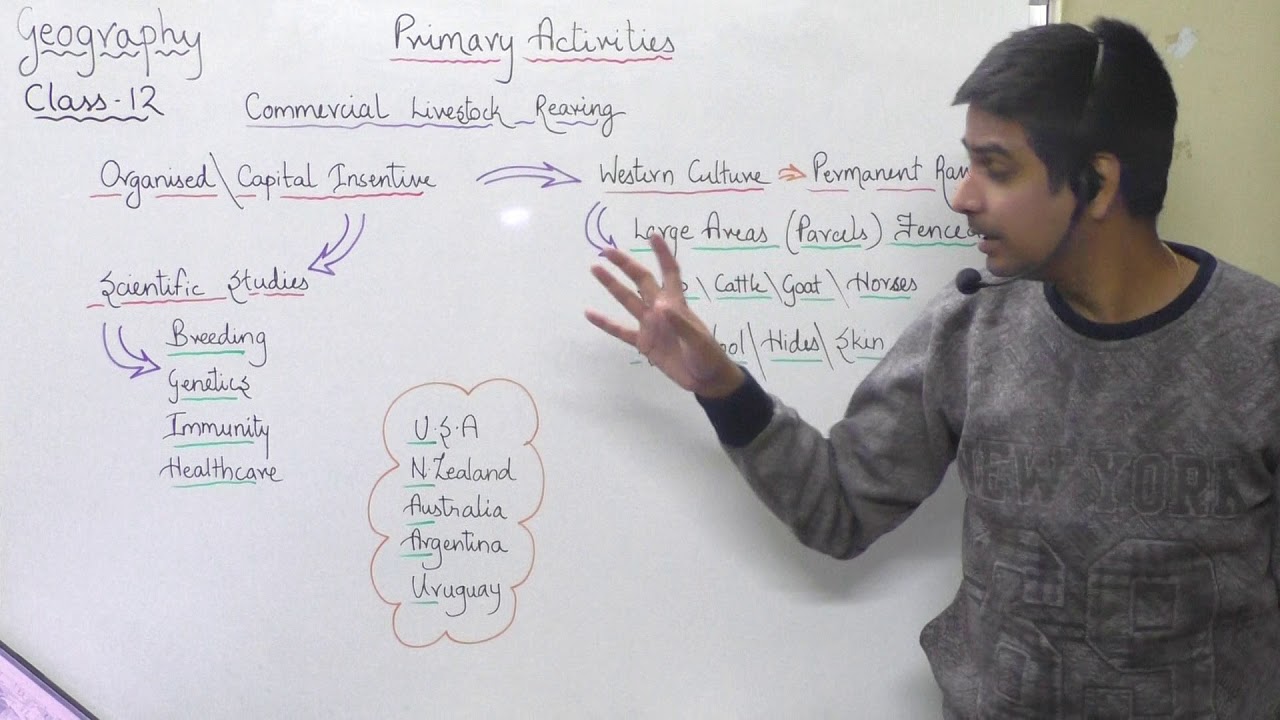 Geography
Primary Activities
Class-12
Commercial Livestock Rearing
Organised\Capital Insentive
Western Culture
Permanent
Large Areas (Parcels)
Scientific Studies
\Cattle\Goat\Horses
Breeding
\Hides\Skin
Genetics
Immunity
Healthcare
U.S.A
N.Zealand
Australia
Argentina
Uruguay
NEW YORK